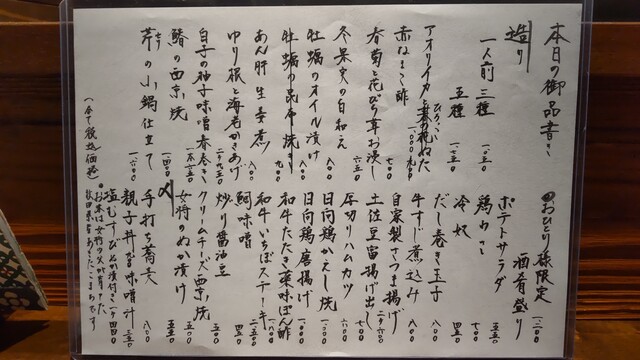 本日の御品書き
造り
一人前 三種 一、〇五〇
五種 一、七五〇
アオリイカと
一、〇〇〇
赤なまこ酢 九〇〇
春菊と花びら茸お浸し 六五〇
冬果実の白和え 七〇〇
牡蠣のオイル漬け 八〇〇
牡蠣の昆布焼き 九〇〇
あん肝生姜煮 八〇〇
ゆり根と海老かきあげ 二ケ九五〇
白子の柚子味噌春巻き 一本六五〇
鰆の西京焼 一、四〇〇
芹の小鍋仕立て 一、六〇〇
(全て税込価格)
おひとり様限定
酒肴盛り 一、二〇〇
ポテトサラダ 五五〇
鶏わさ 七〇〇
冷奴 四五〇
だし巻き玉子 八〇〇
牛すじ煮込み 八〇〇
自家製さつま揚げ 七〇〇
土佐豆富揚げ出し 二ケ六〇〇
厚切りハムカツ 六〇〇
日向鶏かえし焼
日向鶏唐揚げ
和牛たたき薬味ぽん酢
和牛いちぼステーキ
鯛味噌 四五〇
炒り醤油豆 四五〇
クリームチーズ西京焼 五〇〇
女将のぬか漬け 五五〇
〆
手打ち蕎麦 八〇〇
親子丼 赤味噌汁
塩むすび ぬか漬付き 二ケ四四〇
お米は女将の父が育てた
秋田県産あきたこまちです